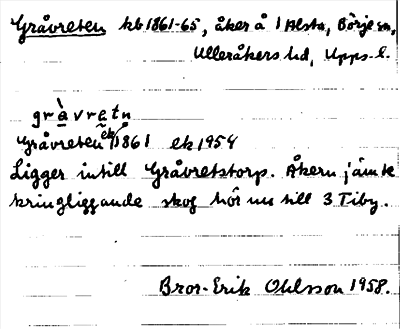 Gråvreten kb 1861-65, åker å 1 Alsta, Börje sn,
Ulleråkers hd, Upps. l.
gràvretn
Gråvreten ek 1861 ek 1954
Ligger intill Gråvretstorp. Åkern jämte
kringliggande skog hör nu till 3 Tiby.
Bror-Erik Ohlsson 1958.